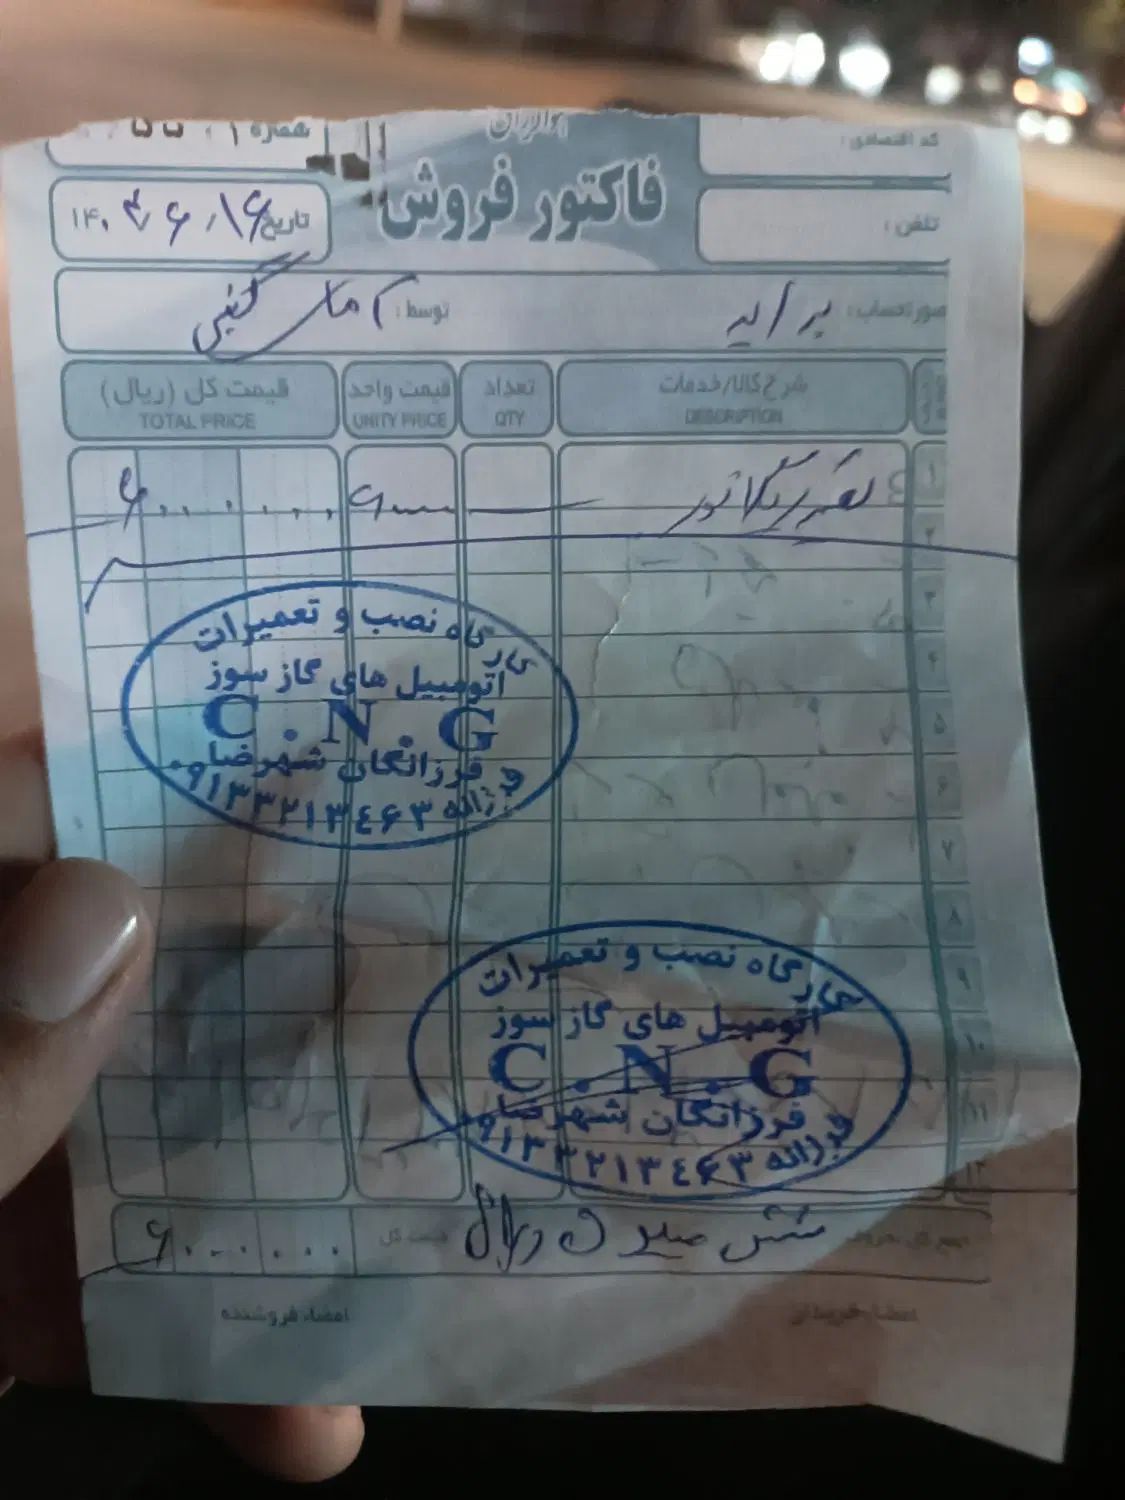 کد اقتصادی:
شماره
تلفن:
فاکتور فروش
تاریخ ۱۴۰۴/۶/۱۶
صورتحساب: پراید
توسط:
شرح کالا/خدمات
تعداد
قیمت واحد
قیمت کل (ریال)
DESCRIPTION
QTY
UNITY PRICE
TOTAL PRICE
۱ تعمیر رگلاتور ۶۰۰۰۰۰۰
۲
۳
۴
۵
۶
۷
۸
۹
۱۰
۱۱
۱۲
کارگاه نصب و تعمیرات
اتومبیل های گاز سوز
C.N.G
فرزانگان شهرضا
فرزانه ۰۹۱۳۳۲۱۳۴۶۳
کارگاه نصب و تعمیرات
اتومبیل های گاز سوز
C.N.G
فرزانگان شهرضا
فرزانه ۰۹۱۳۳۲۱۳۴۶۳
جمع کل حروف شش میلیون ریال قیمت کل ۶۰۰۰۰۰۰
امضاء خریدار
امضاء فروشنده